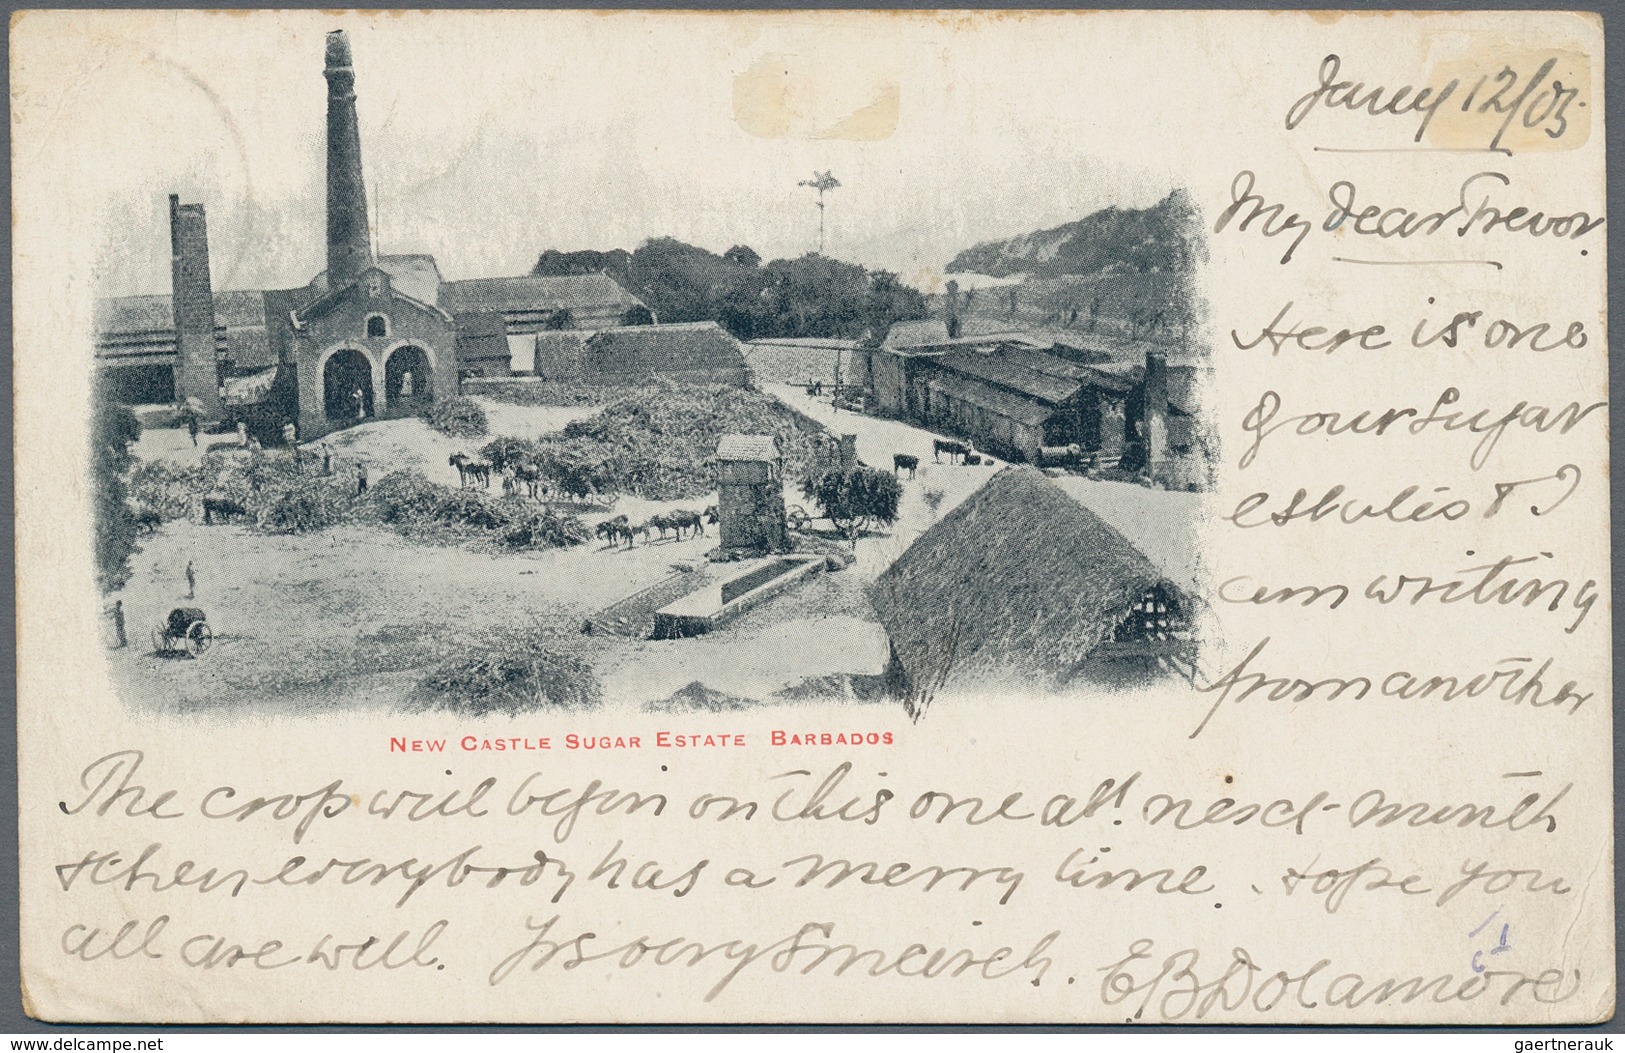 Jany 12/03
My dear Trevor.
Here is one
of our Sugar
estates & I
am writing
from another
NEW CASTLE SUGAR ESTATE BARBADOS
The crop will begin on this one abt. next month
& then everybody has a merry time. Hope you
all are well. Yrs very Sincerely.
EBDolamore
www.delcampe.net
gaertnerauk